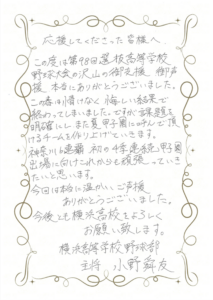 応援してくださった皆様へ
この度は第98回選抜高等学校
野球大会の沢山の御支援、御声
援、本当にありがとうございました。
この春は情けなく、悔しい結果で
終わってしまいました。ですが課題を
明確にし、また夏、甲子園に呼んで頂
けるチームを作り上げていきます。
神奈川連覇、初の4季連続甲子園
出場に向けこれからも頑張っていき
たいと思います。
今回は本当に温かいご声援
ありがとうございました。
今後とも横浜高校をよろしく
お願い致します。
横浜高等学校野球部
主将 小野舜友